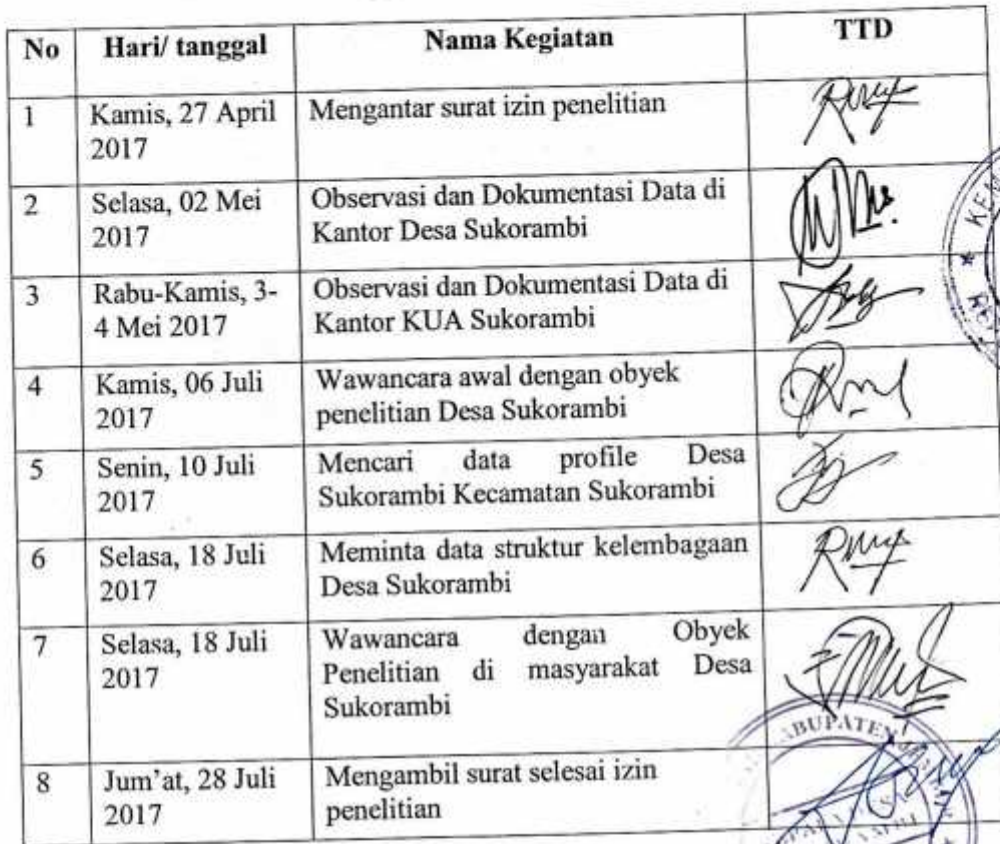 No Hari/ tanggal Nama Kegiatan TTD
1 Kamis, 27 April Mengantar surat izin penelitian
2017
2 Selasa, 02 Mei Observasi dan Dokumentasi Data di
2017 Kantor Desa Sukorambi
3 Rabu-Kamis, 3- Observasi dan Dokumentasi Data di
4 Mei 2017 Kantor KUA Sukorambi
4 Kamis, 06 Juli Wawancara awal dengan obyek
2017 penelitian Desa Sukorambi
5 Senin, 10 Juli Mencari data profile Desa
2017 Sukorambi Kecamatan Sukorambi
6 Selasa, 18 Juli Meminta data struktur kelembagaan
2017 Desa Sukorambi
7 Selasa, 18 Juli Wawancara dengan Obyek
2017 Penelitian di masyarakat Desa
Sukorambi
8 Jum'at, 28 Juli Mengambil surat selesai izin
2017 penelitian